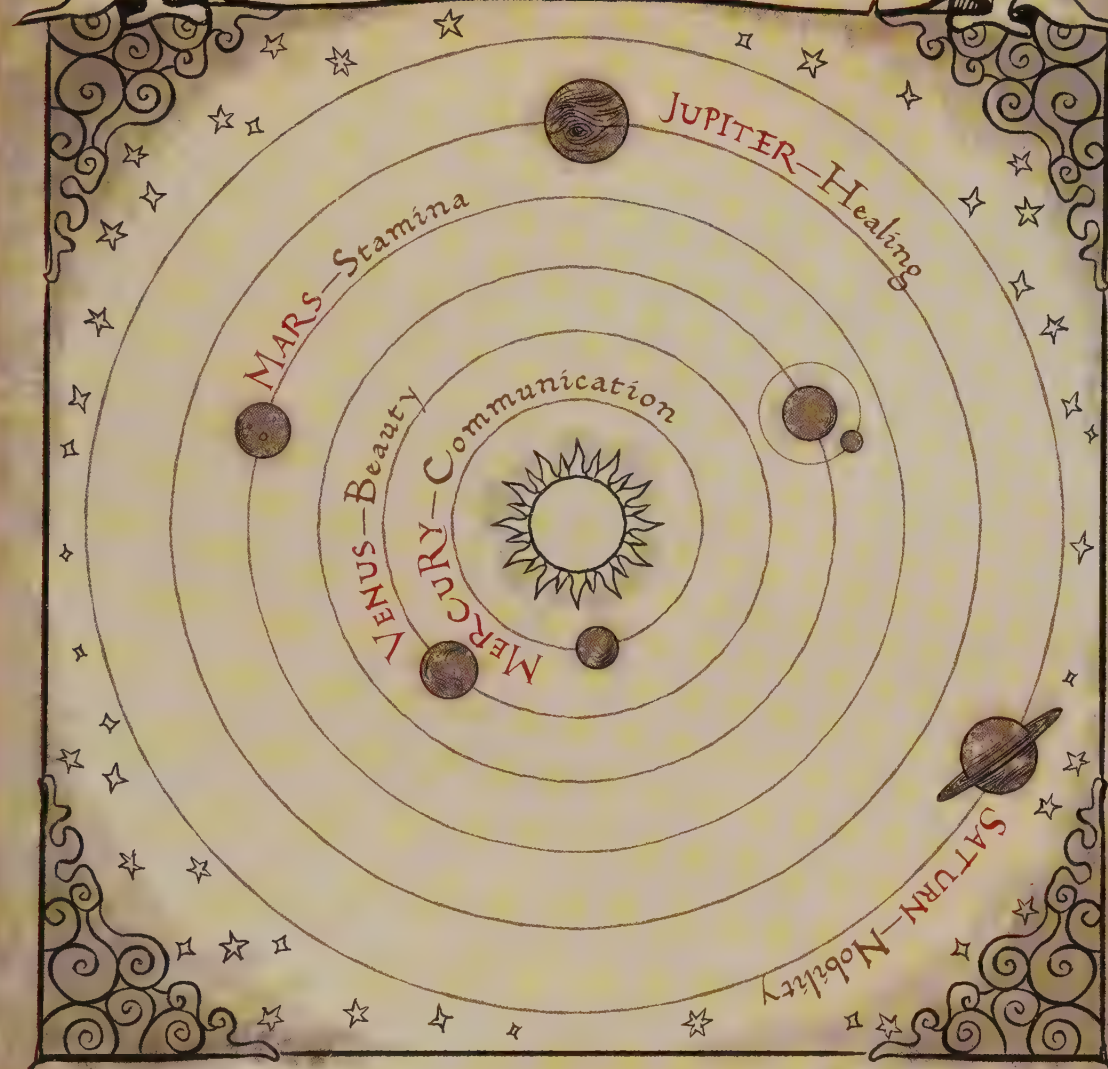 JUPITER—Healing
MARS—Stamina
VENUS—Beauty
MERCURY—Communication
SATURN—Nobility